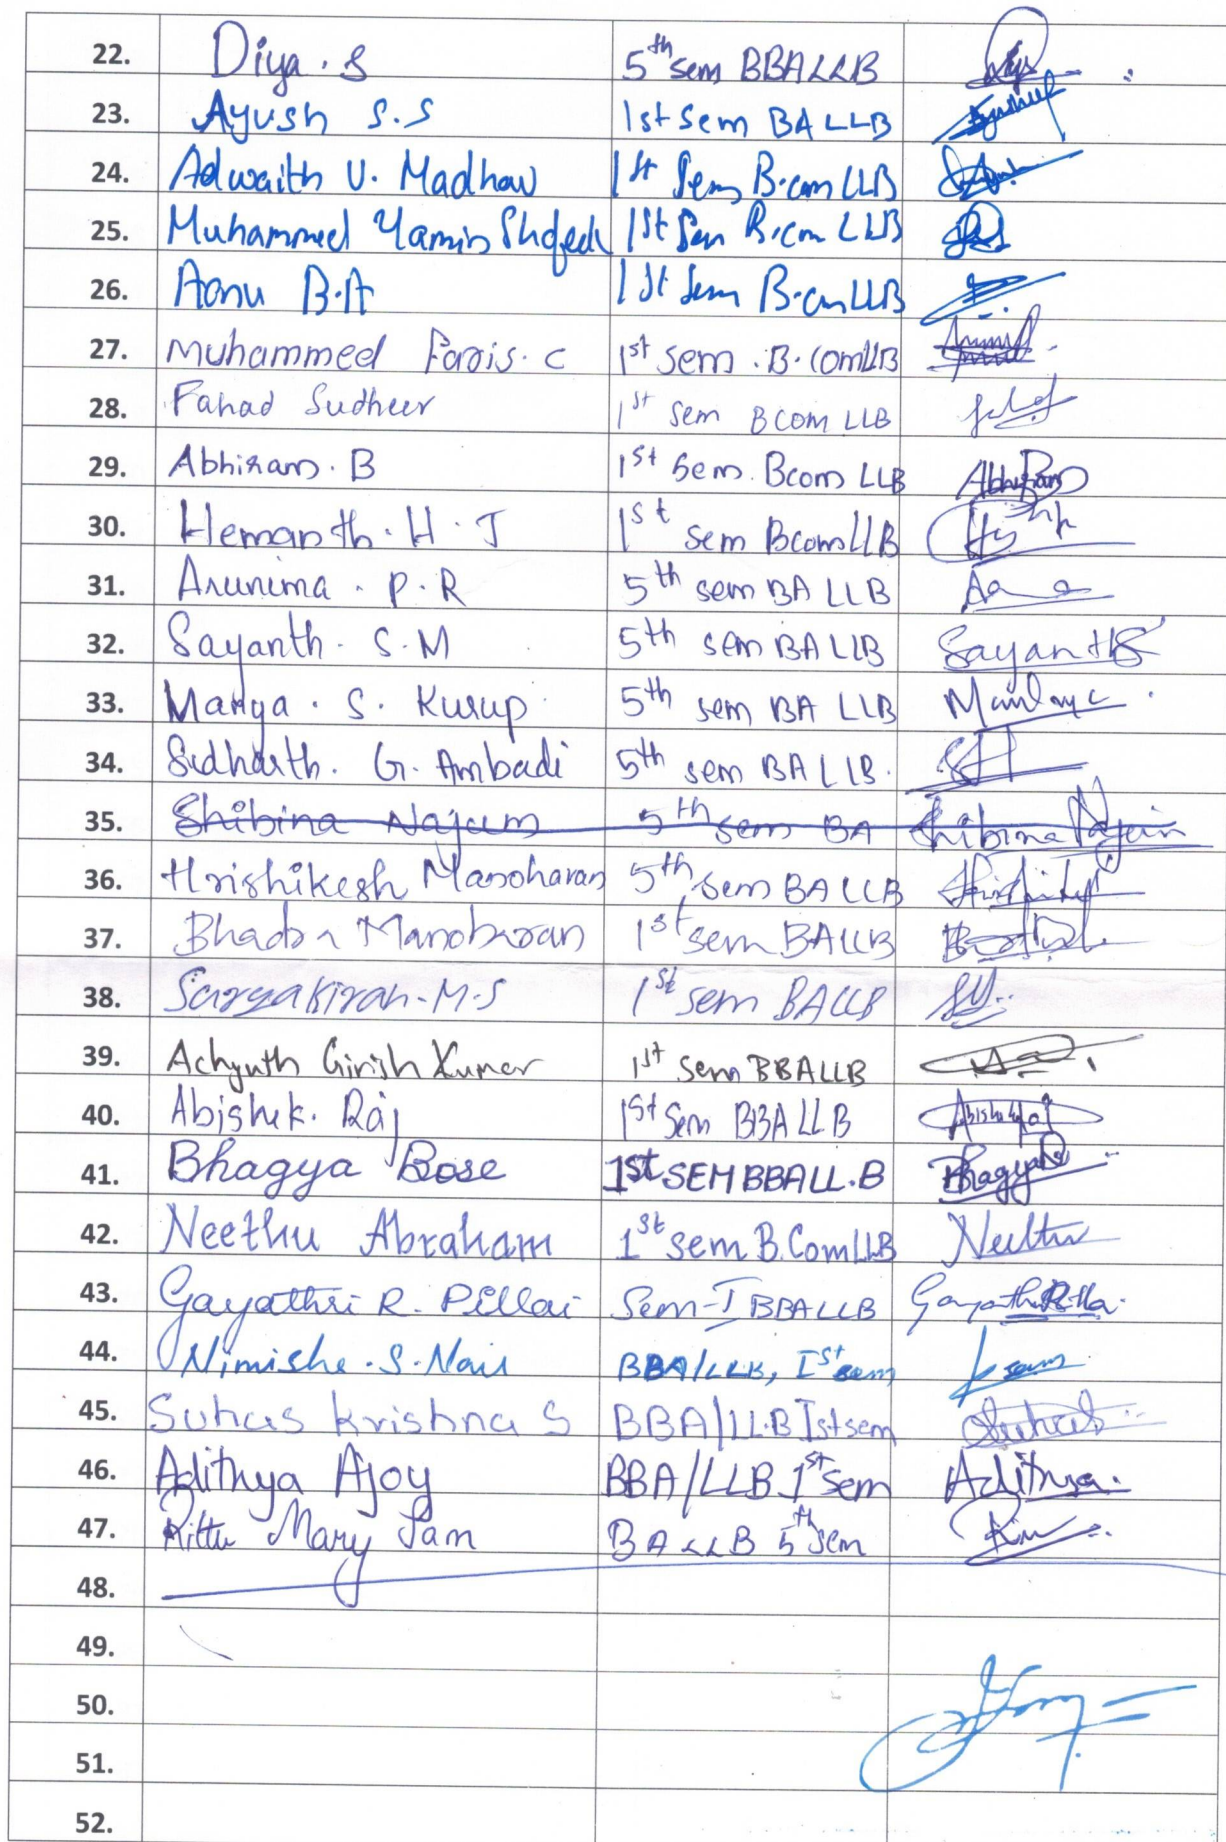 22. Diya. S 5th sem BBALLB
23. Ayush S.S 1st Sem BA LLB
24. Adwaith U. Madhav 1st Sem B.com LLB
25. Muhammed Yamin 1st Sem B.com LLB
26. B.A 1st Sem B.com LLB
27. Muhammed Faris. C 1st sem. B.comLLB
28. Fahad Sudheer 1st sem BCOM LLB
29. Abhiram. B 1st Sem. Bcom LLB
30. Hemanth. H. J 1st sem BcomLLB
31. Arunima. P. R 5th sem BA LLB
32. Sayanth. S. M 5th sem BA LLB Sayanth
33. S. Kurup 5th sem BA LLB
34. Sidharth. G. Ambadi 5th sem BA LLB.
35. Shibina Najum 5th sem BA Shibina
36. Hrishikesh Manoharan 5th sem BA LLB
37. Bhadra Manoharan 1st sem BALLB
38. Suryakiran-M-S 1st sem BALLB
39. Achyuth Girish Kumar 1st sem BBALLB
40. Abishek. Raj 1st Sem BBA LLB
41. Bhagya Bose 1st SEM BBALL.B Bhagya
42. Neethu Abraham 1st sem B.ComLLB Neethu
43. Gayathri R. Pillai Sem-I BBALLB
44. S. Nair BBA/LLB, Ist sem
45. Suhas Krishna S BBA/LL.B Ist sem Suhas
46. Adithya Ajoy BBA/LLB 1st sem Adithya.
47. Mary BA LLB 5th sem
48.
49.
50.
51.
52.